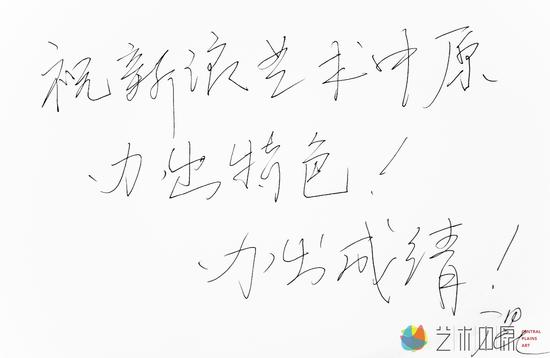 祝新浪艺术中原
办出特色！
办出成绩！
艺术中原
CENTRAL
PLAINS
ART